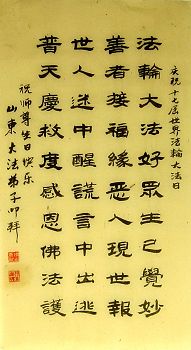 庆祝十七届世界法輪大法日
法輪大法好眾生已覺妙
善者接福緣惡人現世報
世人迷中醒謊言中出逃
普天慶救度感恩佛法護
祝师尊生日快乐
山東大法弟子叩拜